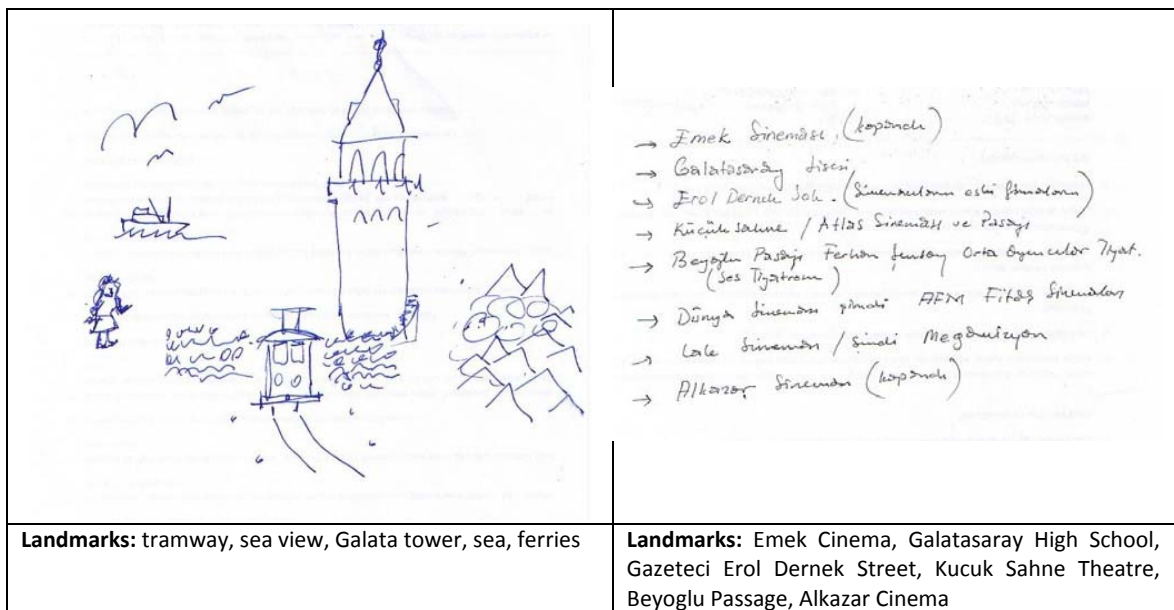 → Emek Sineması. (kapandı)
→ Galatasaray Lisesi
→ Erol Dernek Sok. (Sinemacıların eski
→ Küçük sahne / Atlas Sineması ve Pasajı
→ Beyoğlu Pasajı Ferhan Şensoy Orta Oyuncular Tiyat.
(Ses Tiyatrosu)
→ Dünya Sineması şimdi AFM Fitaş Sinemaları
→ Lale Sineması / Şimdi Megavizyon
→ Alkazar Sineması (kapandı)
Landmarks: tramway, sea view, Galata tower, sea, ferries
Landmarks: Emek Cinema, Galatasaray High School,
Gazeteci Erol Dernek Street, Kucuk Sahne Theatre,
Beyoglu Passage, Alkazar Cinema